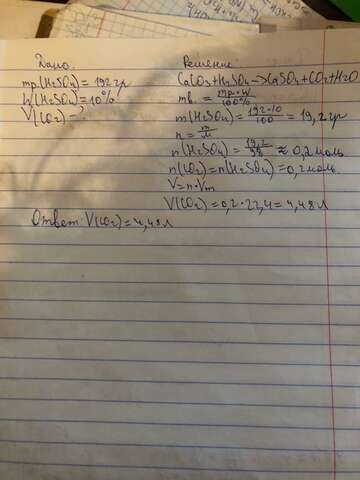 Дано:
mр(H2SO4) = 192 гр
h(H2SO4) = 10%
V(CO2) - ?
Решение
CaCO3 + H2SO4 -> CaSO4 + CO2 + H2O
mв. = mр·w / 100%
m(H2SO4) = 192·10 / 100 = 19,2 гр
n = m / M
n(H2SO4) = 19,2 / 98 ≈ 0,2 моль
n(CO2) = n(H2SO4) = 0,2 моль
V = n·Vm
V(CO2) = 0,2·22,4 = 4,48 л
Ответ: V(CO2) = 4,48 л